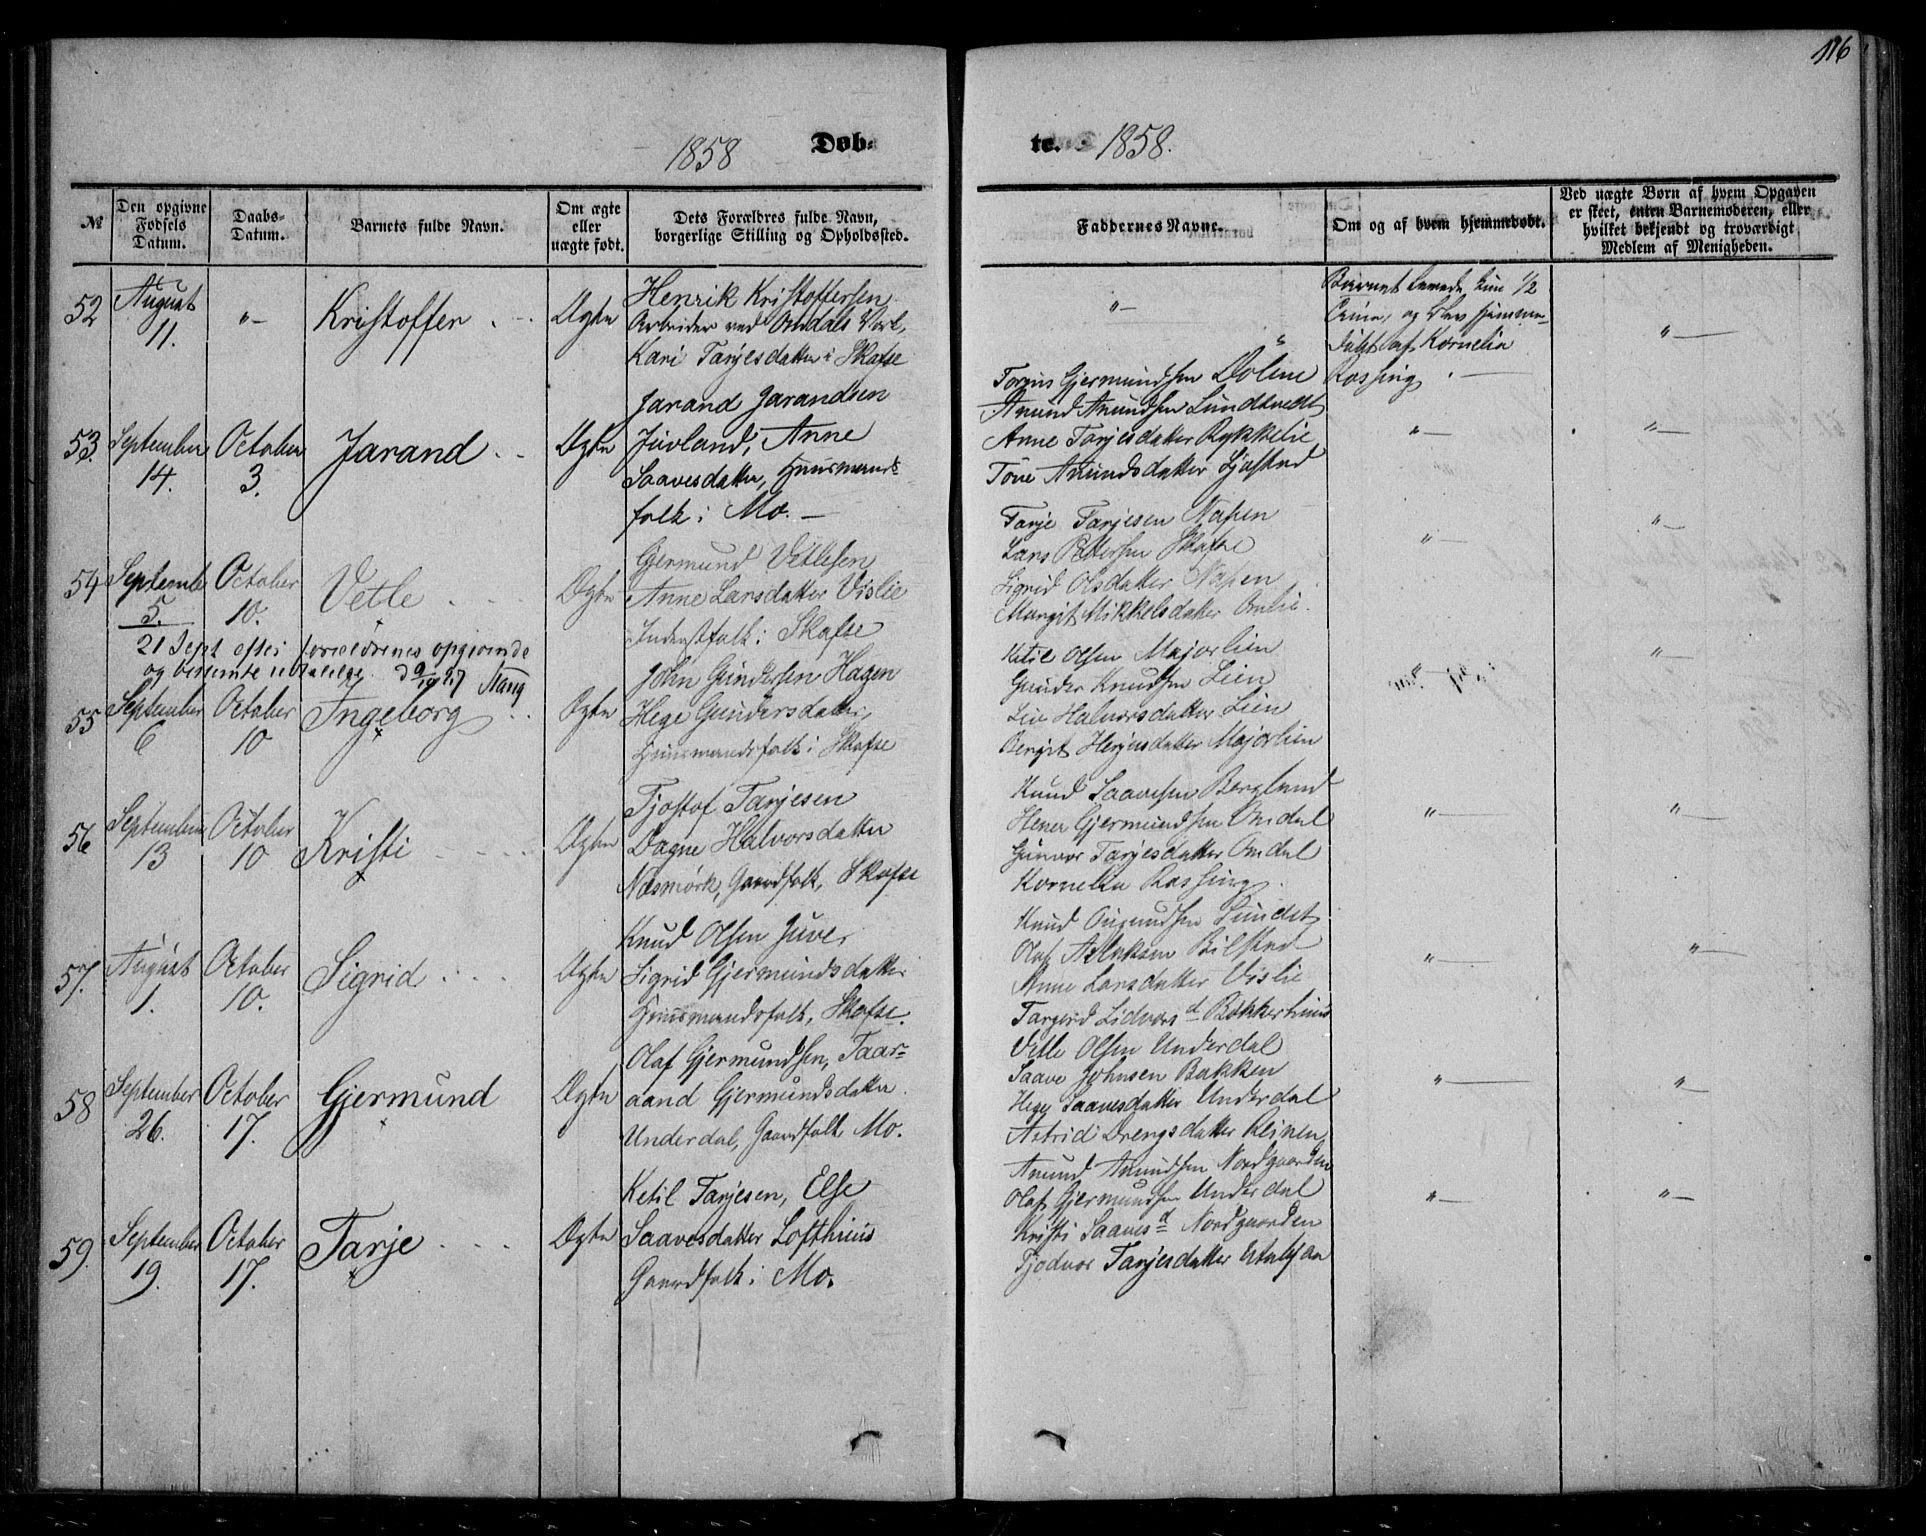 116
1858 Døb-
te. 1858.
№
Den opgivne Fødsels Datum.
Daabs-Datum.
Barnets fulde Navn.
Om ægte eller uægte født.
Dets Forældres fulde Navn, borgerlige Stilling og Opholdssted.
Faddernes Navne.
Om og af hvem hjemmedøbt.
Ved uægte Børn af hvem Opgaven er skeet, enten Barnemoderen, eller hvilket bekjendt og troværdigt Medlem af Menigheden.
52 August 11. "— Kristoffer Ægte
Henrik Kristoffersen
Arbeider ved Omdals Verk,
Kari Tarjesdatter i Skafse
"—
Barnet levede kun 1/2
og blev hjemme-
døbt af Kornelia
Rossing
"—
53. September 14. October 3. Jarand Ægte
Jarand Jarandsen
Juvland, Anne
Saavesdatter, Huusmands-
folk i Mo. —
Torgus Gjermundsen Dolene
Anund Anundsen Lundtvedt
Anne Tarjesdatter Rykkelie
Tone Anundsdatter
"—
"—
54 Septembe 5. October 10. Vetle Ægte
Gjermund Vetlesen
Anne Larsdatter Vislie
Inderstfolk i Skafse
Tarje Tarjesen Napen
Lars Pettersen Skafse
Sigrid Olsdatter Napen
Margit Mikkelsdatter Omlie.
"—
"—
21 Sept efter forældrenes opgivende
og bestemte
55 September 6 October 10 Ingeborg Ægte
John Gundersen Hagen
Hege Gundersdatter,
Huusmandsfolk i Skafse
Ketil Olsen Majorlien
Gunder Knudsen Lien
Liv Halvorsdatter Lien
Bergit Herjusdatter Majorlien
"—
"—
56 September 13 October 10 Kristi Ægte
Tjostof Tarjesen
Dagne Halvorsdatter
Næsmørk, Gaardfolk, Skafse
Knud Saavesen Berglund
Stener Gjermundsen Omdal
Gunvor Tarjesdatter Omdal
Kornelia Rossing.
"—
"—
57. August 1. October 10. Sigrid Ægte
Knud Olsen Juve,
Sigrid Gjermundsdatter
Huusmandsfolk, Skafse.
Knud Lundet
Olaf Aslaksen Bilstad
Anne Larsdatter Vislie
Targerd Lidvors d Bakkerhuus
"—
"—
58 September 26. October 17. Gjermund Ægte
Olaf Gjermundsen, Taar=
aand Gjermundsdatter
Underdal, Gaardfolk Mo.
Vetle Olsen Underdal
Saave Johnsen Bakken
Hege Saavesdatter Underdal
Astrid Drengsdatter Reinen
"—
"—
59. September 19. October 17. Tarje Ægte
Ketil Tarjesen, Else
Saavesdatter Lofthuus
Gaardfolk i Mo.
Anund Anundsen Nordgaarden
Olaf Gjermundsen Underdal
Kristi Saaves d Nordgaarden
Tjodvor Tarjesdatter
"—
"—